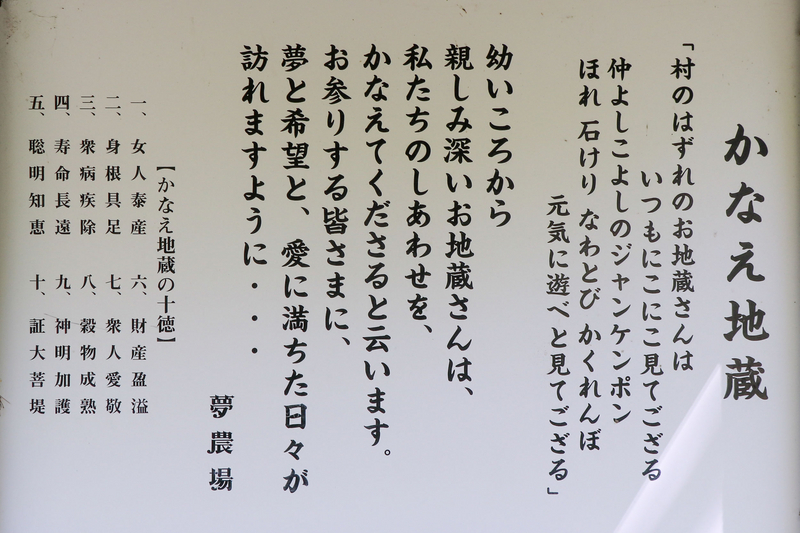 かなえ地蔵
「村のはずれのお地蔵さんは
いつもにこにこ見てござる
仲よしこよしのジャンケンポン
ほれ 石けり なわとび かくれんぼ
元気に遊べと見てござる」
幼いころから
親しみ深いお地蔵さんは、
私たちのしあわせを、
かなえてくださると云います。
お参りする皆さまに、
夢と希望と、愛に満ちた日々が
訪れますように・・・
夢農場
【かなえ地蔵の十徳】
一、女人泰産 六、財産盈溢
二、身根具足 七、衆人愛敬
三、衆病疾除 八、穀物成熟
四、寿命長遠 九、神明加護
五、聡明知恵 十、証大菩堤